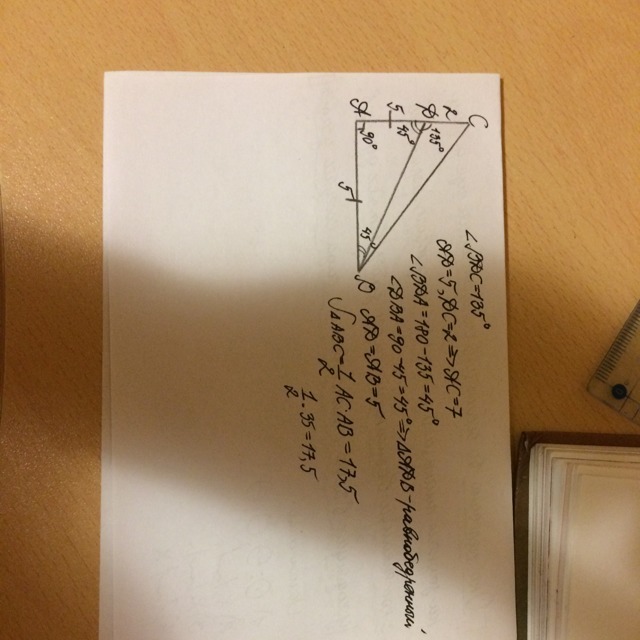 C
2
D
135°
45°
5
A
90°
5
45°
B
∠BDC=135°
AD=5, DC=2 => AC=7
∠BDA=180-135=45°
∠DBA=90-45=45° => ΔADB-равнобедренный
AD=AB=5
SΔABC=1/2 AC·AB=17,5
1/2·35=17,5